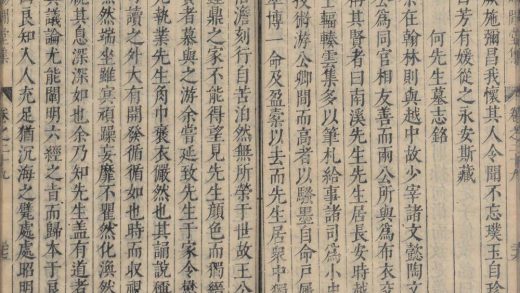 威施彌昌我懷其人令聞不忘璞玉自珍
芳有媛從之永安斯藏
何先生墓志銘
在翰林則與越中故少宰諸文懿陶文
公爲同官相友善而兩公所與爲布衣交
其賢者曰南溪先生先生居長安時越
士輻輳雲集多以筆札給事諸司爲小史
術游公卿間而高者以騷墨自命戶屨
博一命及盈橐以去而先生居衆中獨
澹刻行自苦泊然無所榮于世故王公
鼎之家不能得望見先生顏色而獨經
者慕與之游余嘗延致先生于家令
執業先生角巾褒衣儼然也其誦說
讀之外大有開發循循如也時而収視
然端坐雖寞頑躁妄靡不瞿然化渙然
其息深深如也余乃知先生蓋有道者
其議論尤能闡明六經之旨而歸本于良
良知人人充足猶沉海之甓處處昭明
閒堂集
卷之二十九